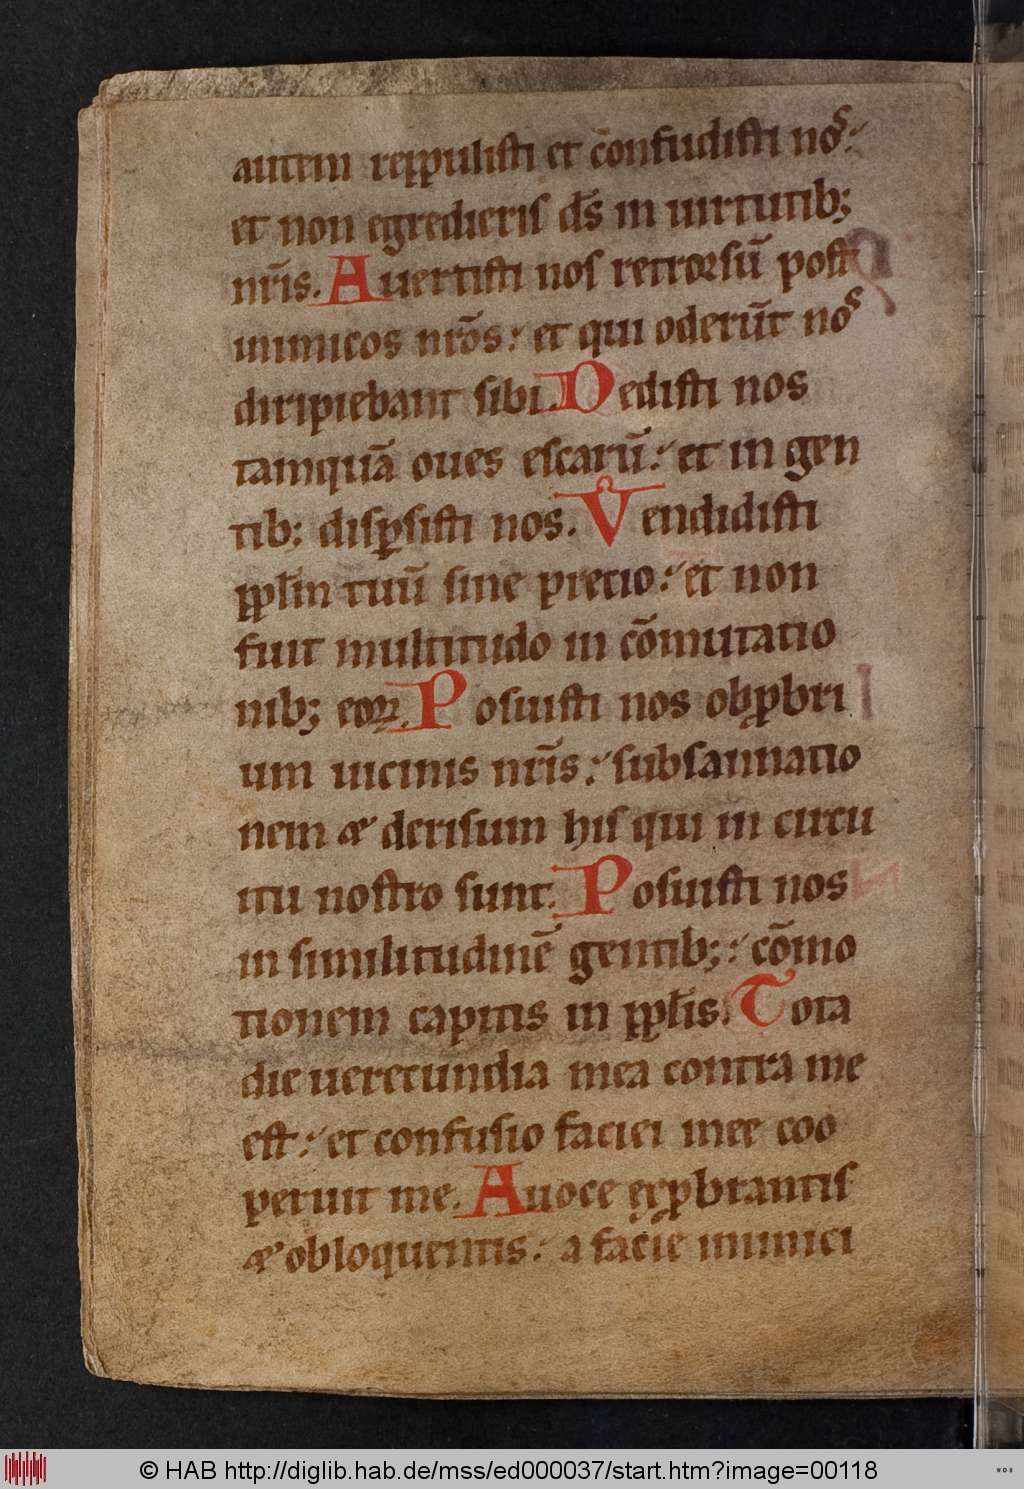 autem reppulisti et c̄onfudisti nos:
et non egredieris ds̄ in uirtutib;
nr̄is. Auertisti nos retrorsū post
inimicos nr̄os: et qui oderūt nos
diripiebant sibi. Dedisti nos
tamquā oues escarū: et in gen
tib; disꝑsisti nos. Vendidisti
ppl̄m tuū sine precio: et non
fuit multitudo in cōmutatio
nib; eoꝝ. Posuisti nos obꝓbri
um uicinis nr̄is: subsannatio
nem & derisum his qui in circu
itu nostro sunt. Posuisti nos
in similitudinē gentib;: cōmo
tionem capitis in ppl̄is. Tota
die uerecundia mea contra me
est: et confusio faciei mee coo
peruit me. Auoce exꝓbrantis
& obloquentis: a facie inimici
© HAB http://diglib.hab.de/mss/ed000037/start.htm?image=00118